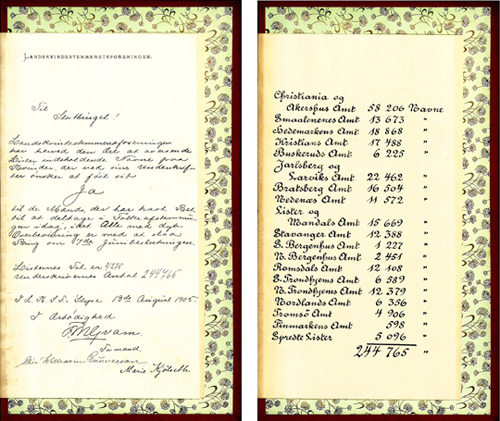 LANDSKVINDESTEMMERETSFORENINGEN.
Til
Storthinget!
Landskvindestemmeretsforeningen
har herved den Ære at oversende
Lister indeholdende Navne paa
Kvinder, der ved sin Underskrift
ønsker at föie sit
Ja
til de Mænds, der har havt Ret
til at deltage i Folkeafstemnin-
gen idag, i det Alle med dyb
Overbevisning er med at slaa
Ring om 7de Junibeslutningen.
Listernes Tal er 4278
Underskrifternes Antal 244765
13de August 1905.
I Ærbödighed
FMQvam
Formand.
Marie Kjölseth
Christiania og
Akershus Amt 58 206 Navne
Smaalenenes Amt 13 673 "
Hedemarkens Amt 18 868 "
Kristians Amt 17 488 "
Buskeruds Amt 6 225 "
Jarlsberg og
Larviks Amt 22 462 "
Bratsberg Amt 16 504 "
Nedenæs Amt 11 572 "
Lister og
Mandals Amt 15 669 "
Stavanger Amt 12 388 "
S. Bergenhus Amt 1 227 "
N. Bergenhus Amt 2 451 "
Romsdals Amt 12 108 "
S. Trondhjems Amt 6 589 "
N. Trondhjems Amt 12 379 "
Nordlands Amt 6 356 "
Tromsö Amt 4 906 "
Finmarkens Amt 598 "
Spredte Lister 5 096 "
244 765 "